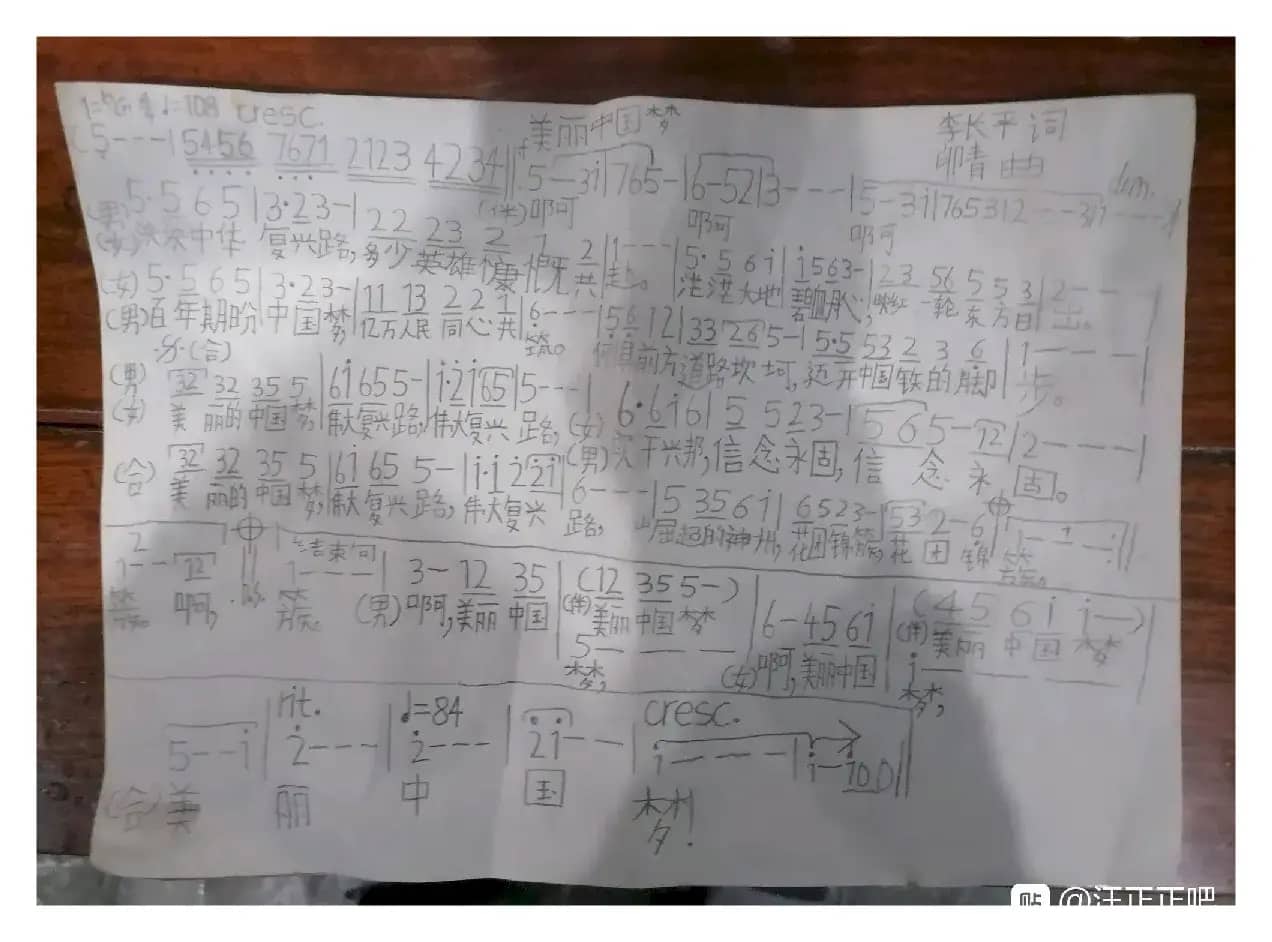 美丽中国梦
李长平 词
印青 曲
♩=108 cresc.
(5---|5456 7671 2123 4234||5--3i|765-|6-52|3---|5--3i|7653|2---3|1---
(伴)啊 啊 啊 dim.
5·5 6 5|3·2 3-|22 23 2 7 2|1---|5·5 6 i|i563-|23 56 5 5 3|2---|
(男)
(女)泱泱中华 复兴路,多少英雄慷慨共赴。 茫茫大地 碧血丹心,映红一轮东方日出。
(女)5·5 6 5|3·2 3-|11 13 2 2 1|6---|56 12|33 26 5-|5·5 53 2 3 6|1---|
(男)百年期盼 中国梦,亿万人民 同心共筑。 何惧前方道路坎坷,迈开中国铁的脚步。
(合)
(男) 32 32 35 5|6i 65 5-|i·2 i65|5---| 6·6 i 6|5 5 2 3-|5 6 5-12|2---|
(女) 美丽的中国梦,伟大复兴路,伟大复兴路,(女)
(男)实干兴邦,信念永固,信念永固。
32 32 35 5|6i 65 5-|i·i 2 2i|6---|5 35 6 i|6523-|53 2-6|1---:||
(合) 美丽的中国梦,伟大复兴路,伟大复兴路, 崛起的神州,花团锦簇,花团锦簇。
2 结束句
1--12 1---|3-12 35|(12 35 5-)|6-45 6i|(45 6i i-)|
簇。 啊, D.S. 簇。 (男)啊,美丽中国 (伴)美丽中国梦
5--- i---
梦, (女)啊,美丽中国 (伴)美丽中国梦
梦,
rit. ♩=84 cresc.
5--i|2---|2---|2i--|i---|i-10 0||
(合)美 丽 中 国 梦!
贴 @汪正正吧